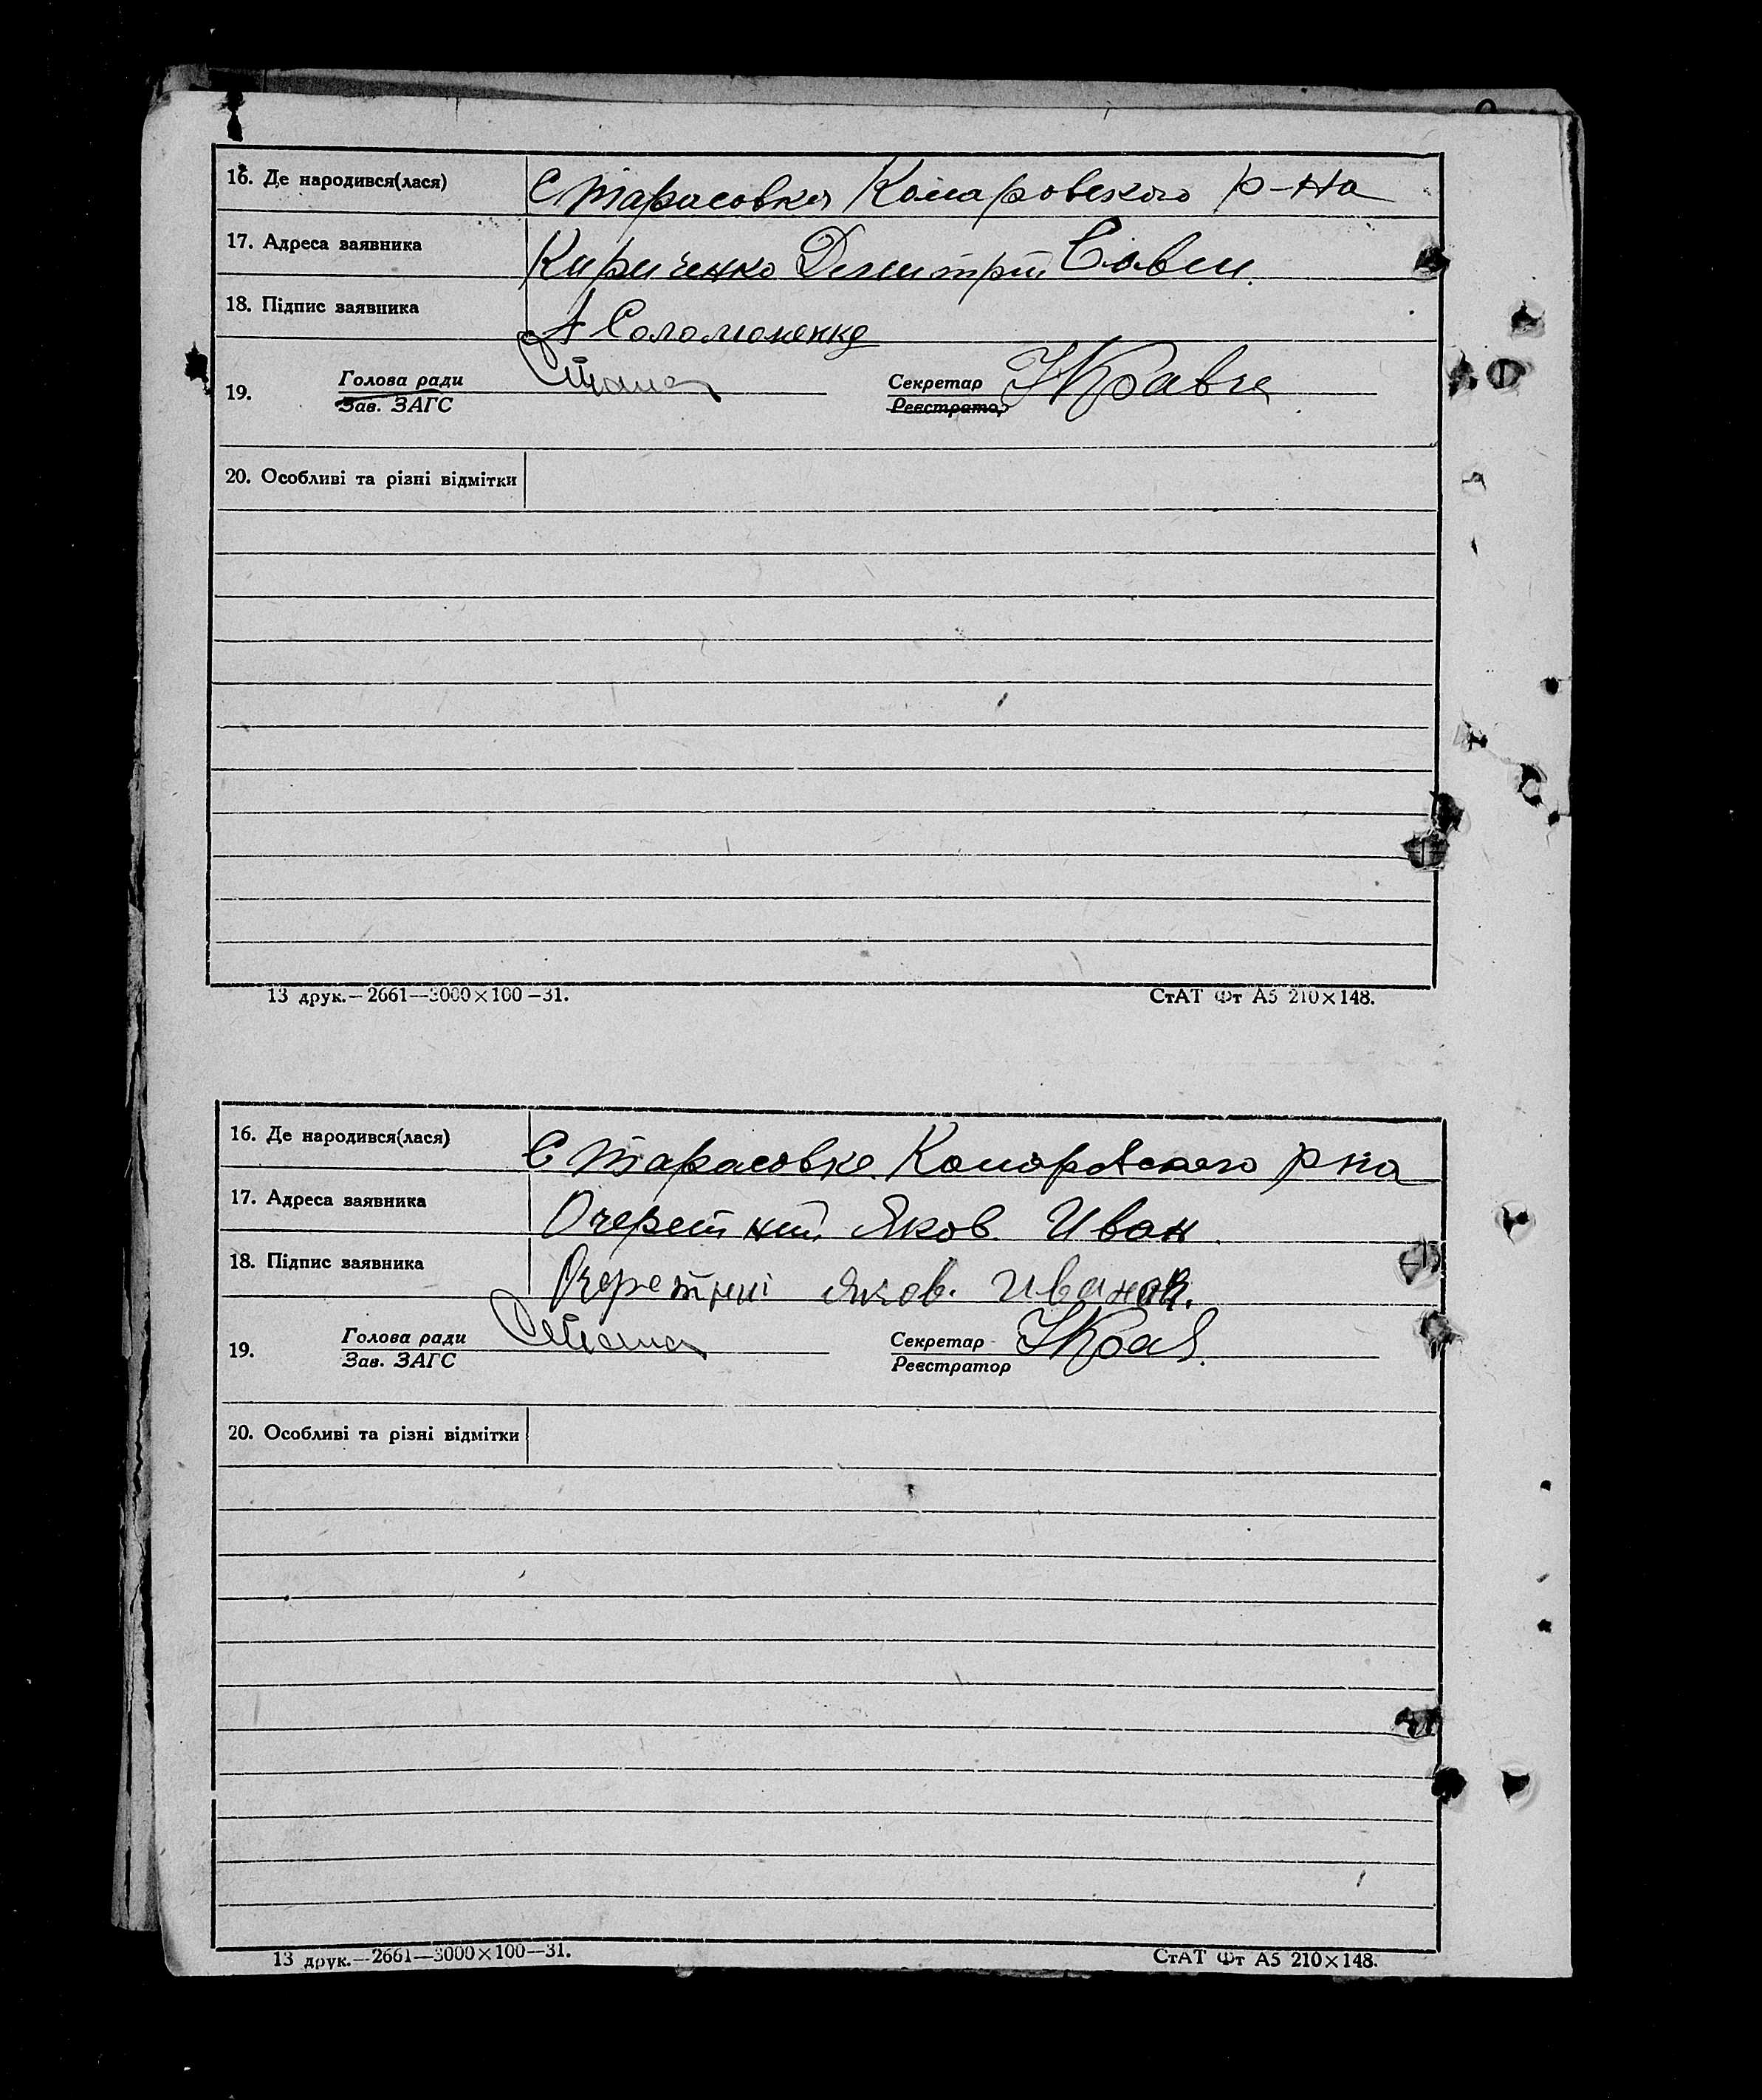 16. Де народився(лася) С Тарасовка Комаровского р-на
17. Адреса заявника Кириченко Дмитрий Савви.
18. Підпис заявника А Соломоненко
19. Голова ради Секретар
Зав. ЗАГС Реєстратор
20. Особливі та різні відмітки
13 друк.—2661—3000×100—31. СтАТ Фт А5 210×148.
16. Де народився(лася) С Тарасовка Комаровского р на
17. Адреса заявника Очеретний Яков. Иван.
18. Підпис заявника Очеретнії Яков. Иванов.
19. Голова ради Секретар
Зав. ЗАГС Реєстратор
20. Особливі та різні відмітки
13 друк.—2661—3000×100—31. СтАТ Фт А5 210×148.